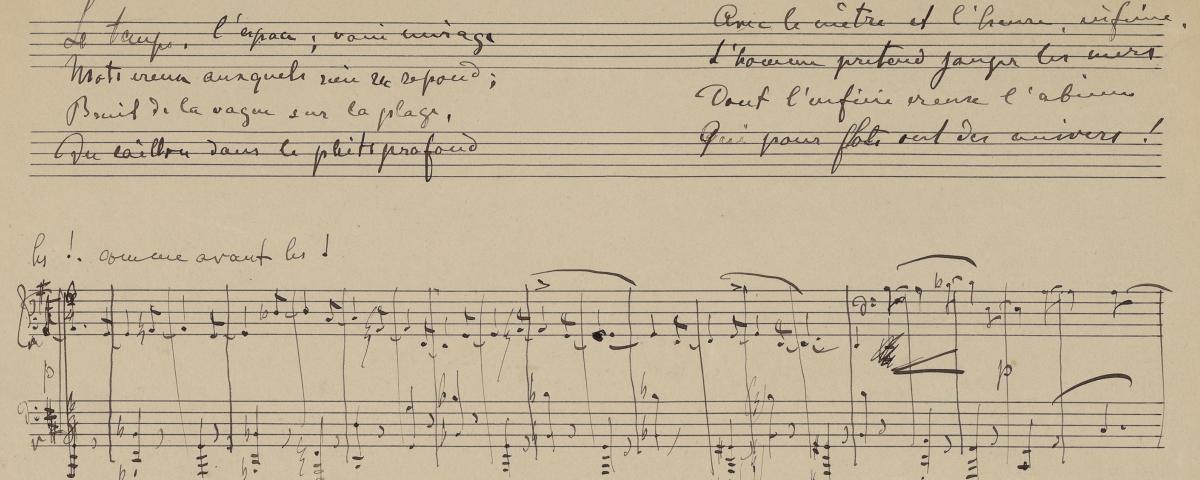 Le temps, l'espace, vain mirage
Mots creux auxquels rien ne répond ;
Bruit de la vague sur la plage,
Du caillou dans le puits profond
Avec le mètre et l'heure, infime,
L'homme prétend jauger les mers
Dont l'infini creuse l'abîme
Qui pour flots ont des univers !
les comme avant les
p
p